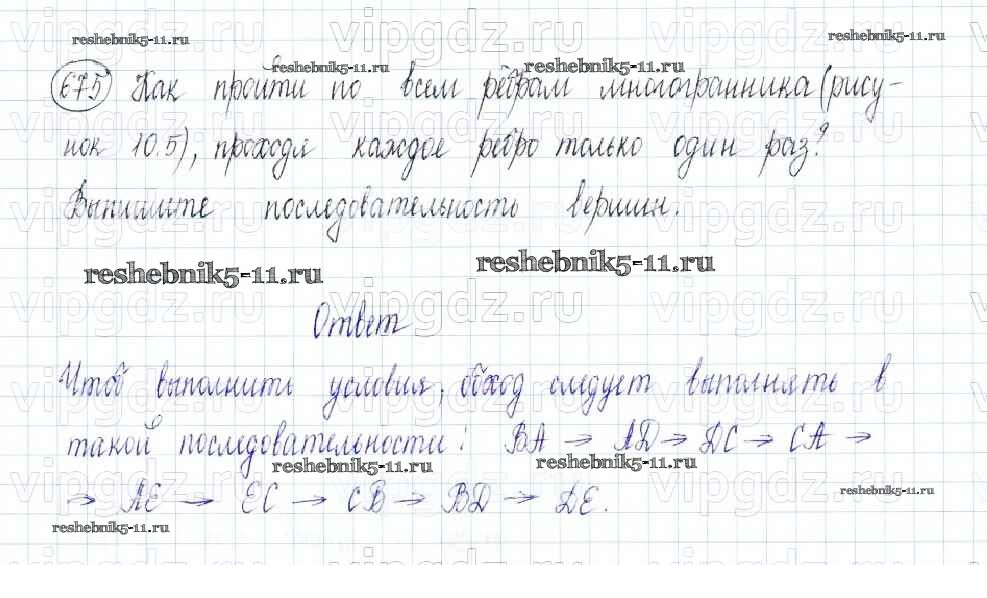 reshebnik5-11.ru
reshebnik5-11.ru
reshebnik5-11.ru
reshebnik5-11.ru
675 Как пройти по всем рёбрам многогранника (рису-
нок 10.5), проходя каждое ребро только один раз?
Выпишите последовательность вершин.
reshebnik5-11.ru
reshebnik5-11.ru
Ответ
Чтоб выполнить условия, обход следует выполнять в
такой последовательности: BA → AD → DC → CA →
reshebnik5-11.ru
reshebnik5-11.ru
→ AE → EC → CB → BD → DE.
reshebnik5-11.ru
reshebnik5-11.ru
vipgdz.ru vipgdz.ru vipgdz.ru vipgdz.ru